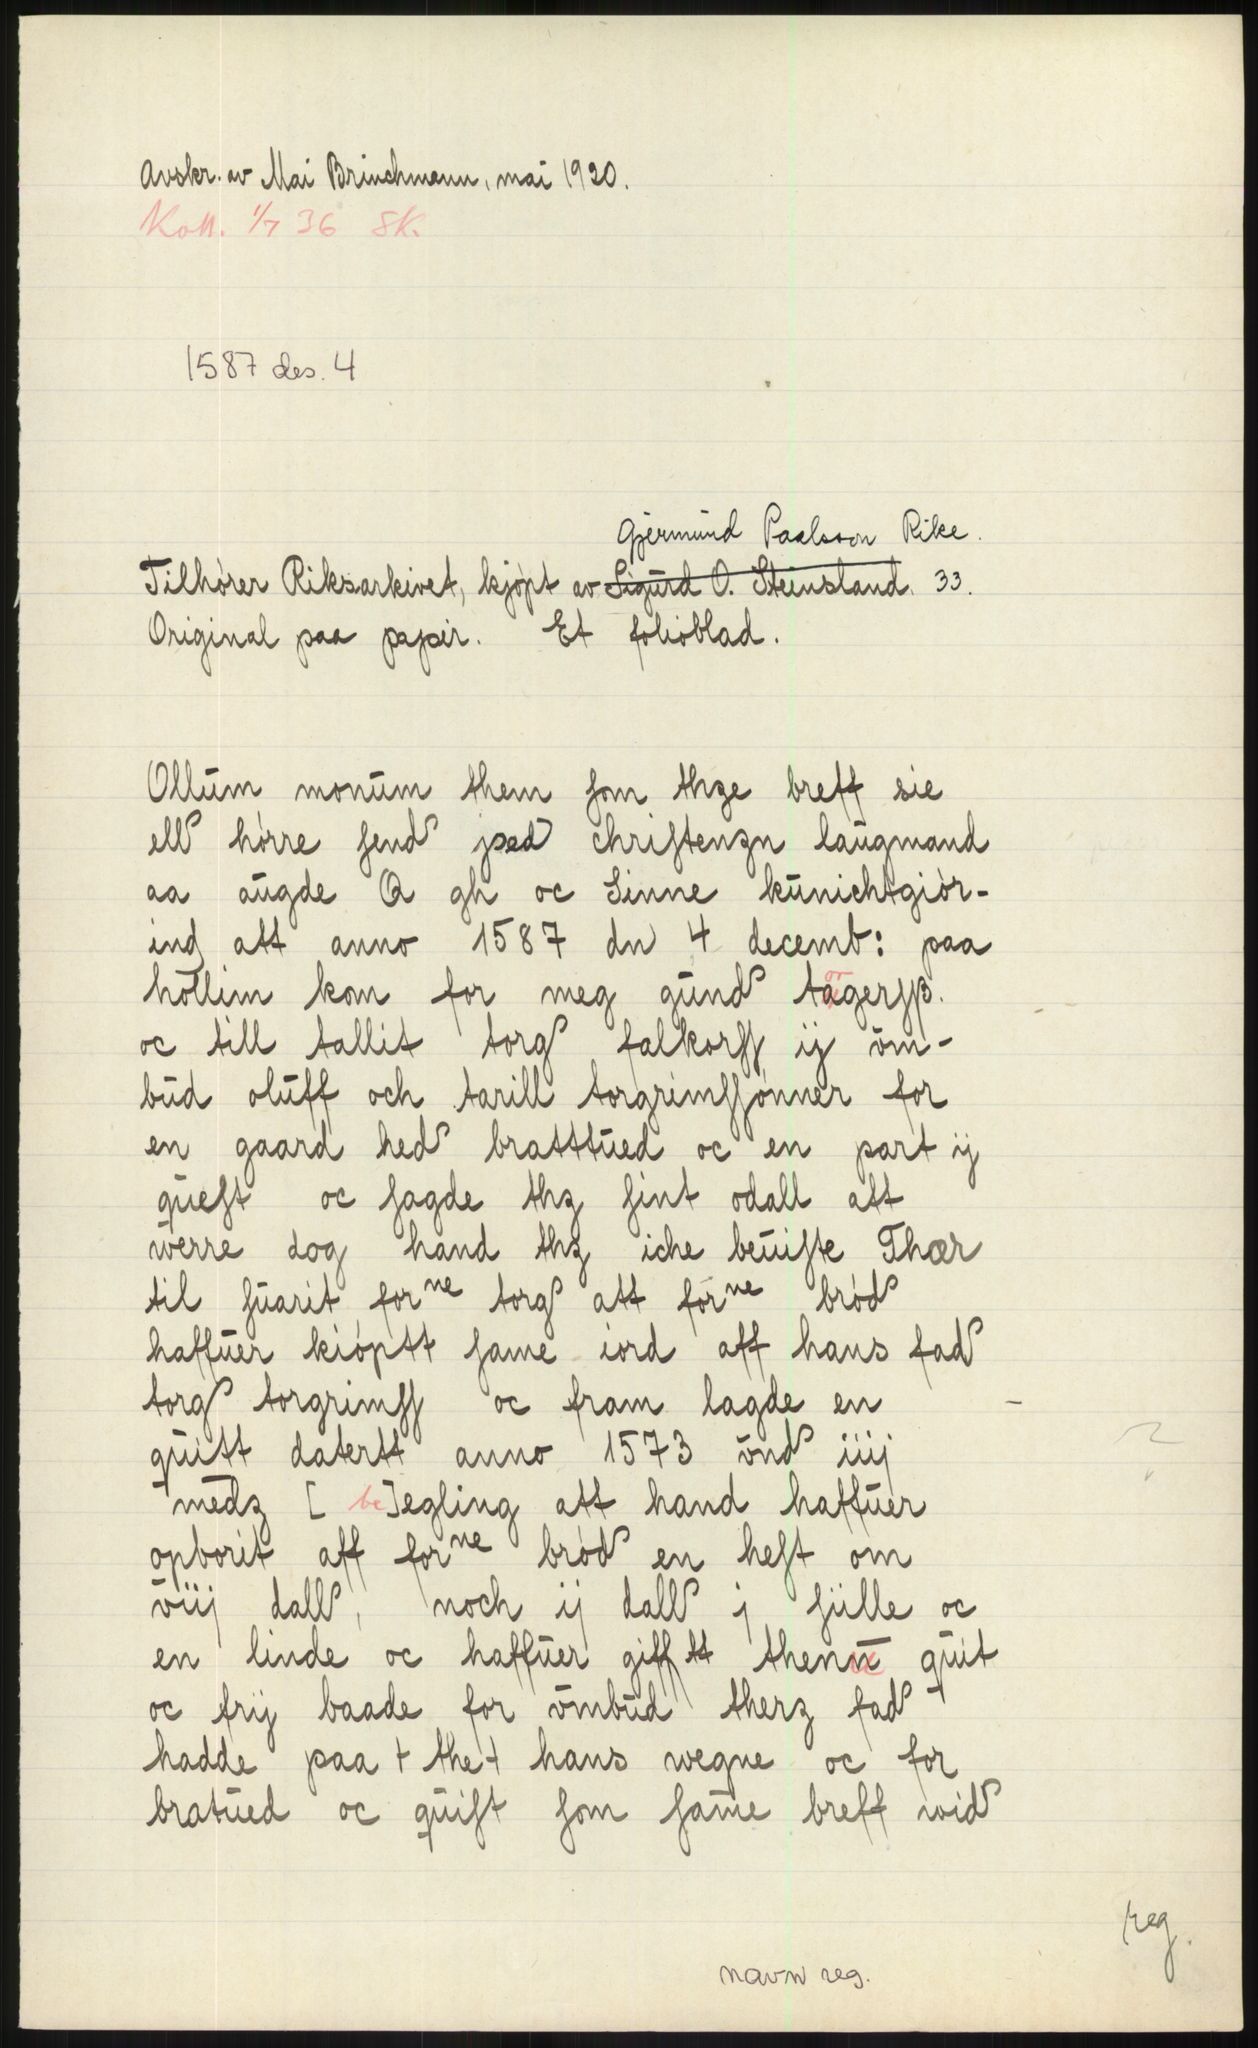 Avskr. av Mai Brinchmann, mai 1920.
Koll. 1/7 36 SK.
1587 des. 4
Gjermund Paalsson Rike.
Tilhører Riksarkivet, kjøpt av Sigurd O. Steinsland. 33.
Original paa papir. Et folioblad.
Ollum monum them som thze breff sie
ell hørre send jped christenzn laugmand
aa augde Q gh oc Sinne kunichtgiør-
ind att anno 1587 dn 4 decemb: paa
hollim kom for meg gund tagerss.
oc till tallit torg falkorss ij om-
bud oluff och tarill torgrimssønner for
en gaard hed bratttued oc en part ij
quest oc sagde thz sint odall att
werre dog hand thz iche beuiste Thær
til suarit forne torg att forne brød
haffuer kiøptt same iord aff hans fad
torg torgrimss oc fram lagde en
quitt datertt anno 1573 vnd iiij
medz [ be]egling att hand haffuer
opborit aff forne brød en hest om
viij dall, noch ij dall j sülle oc
en linde oc haffuer gifftt thenn quit
oc frij baade for ombud therz fad
hadde paa t the t hans wegne oc for
bratued oc quist som same breff wid
reg.
navn reg.